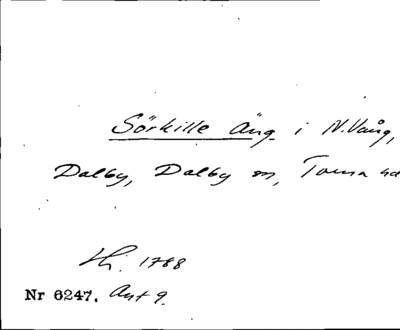 Sörkille Äng i N.Vång,
Dalby, Dalby sn, Torna hd
Hi. 1788
Nr 6247. Akt 9.